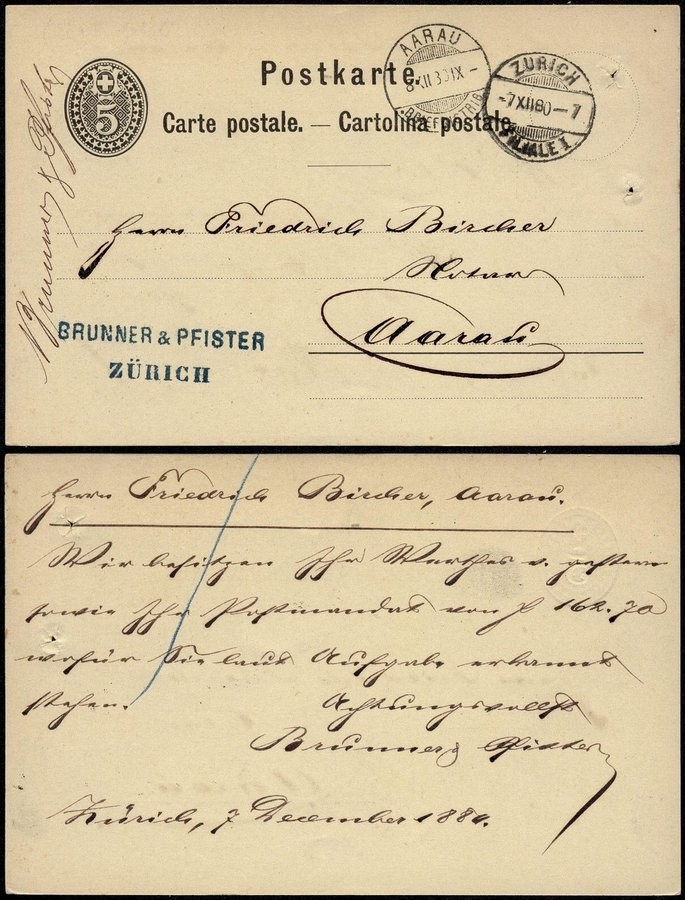 Postkarte.
Carte postale. — Cartolina postale.
5
AARAU
8 XII 80 IX -
BRIEFVERTRIEB
ZÜRICH
-7 XII 80 - 7
FILIALE I.
Brunner & Pfister
Herrn Friedrich Bircher
Notar
Aarau
BRUNNER & PFISTER
ZÜRICH
Herrn Friedrich Bircher, Aarau.
Wir besitzen Ihr Werthes v. gestern
sowie Ihr Postmandat von
wofür Sie laut Aufgabe erkannt
stehen.
Achtungsvollst
Brunner & Pfister
Zürich, 7 December 1880.